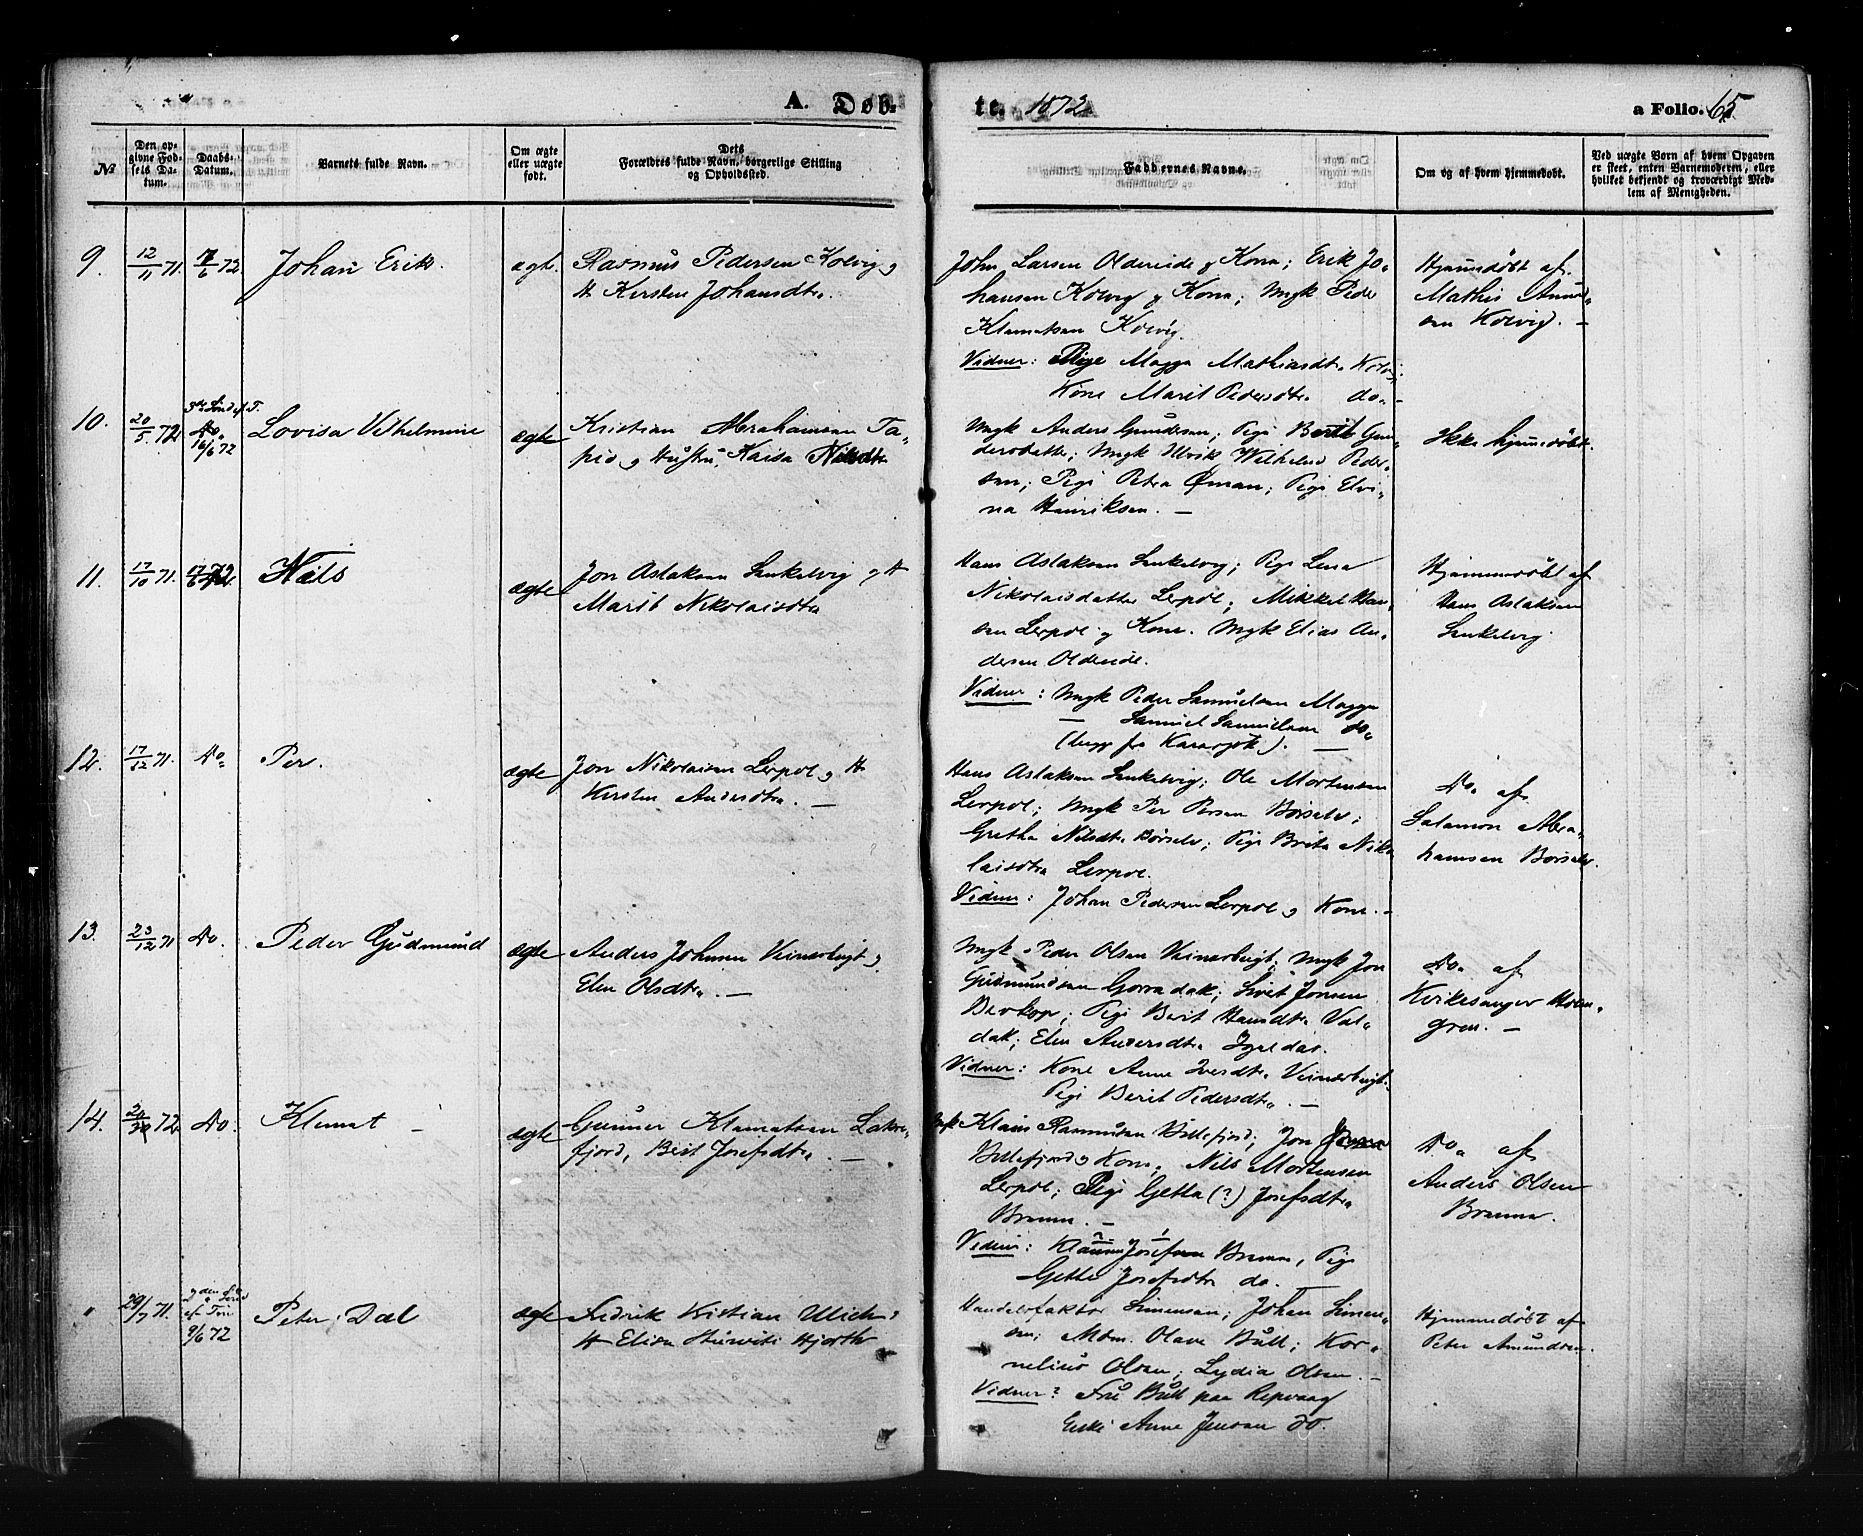 A. Døb-
te. 1872
a Folio. 65
No
Den op-
givne Fød-
sels Da-
tum.
Daabs-
Datum.
Barnets fulde Navn.
Om ægte
eller uægte
født.
Dets
Forældres fulde Navn, borgerlige Stilling
og Opholdssted.
Faddernes Navne.
Om og af hvem hjemmedøbt.
Ved uægte Børn af hvem Opgaven
er skeet, enten Barnemoderen, eller
hvilket bekjendt og troværdigt Med-
lem af Menigheden.
9. 12/11 71. /6 72. Johan Erik. ægt.
Rasmus Pedersen Kolvig og
H Kirsten Johansdtr.
John Larsen Oldereide og Kona; Erik Jo-
hansen Kolvig og Kona; Ungk Peder
Klemetsen Kolvig.
Vidner: Pige Magga Mathiasdtr Kolvi
Kone Marit Pedersdtr do.-
Hjemmdøbt af
Mathis Amund-
sen Kolvig. -
10. 20/5 72 3die Sønd ef T. Do. 16/6 72 Lovisa Vilhelmine ægte
Kristian Abrahamsen Ta-
pio og Hustru, Kaisa Nilsdtr
Ungk Anders Gundersen; Pige Berit Gun-
dersdatter; Ungk Ulrik Wilhelm Peder-
sen; Pige Petra Öman; Pige Elvi-
na Henriksen. -
Ikke hjemmedøbt.
11. 17/10 71. 17/6 72 Nils ægte
Jon Aslaksen Smukelvig og H
Marit Nikolaisdtr
Hans Aslaksen Smukelvig; Pige Lena
Nikolaisdatter Lerpol; Mikkel Han-
sen Lerpol og Kone. Ungk Elias An-
dersen Oldereide.
Vidner: Ungk Peder Samuelsen Magga
- Samuel Samuelsen do.
(begge fra Karasjok). -
Hjemmedøbt af
Hans Aslaksen
Smukelvig.
12. 17/12 71. Do. Per. ægte
Jon Nikolaisen Lerpol og H
Kirsten Andersdtr. -
Hans Aslaksen Smukelvig; Ole Mortensen
Lerpol; Ungk Per Persen Børselv;
Gretha Nilsdtr Børselv; Pige Brita Niko
laisdtr Lerpol.
Vidner: Johan Pedersen Lerpol og Kone. -
Do. af
Salamon Abra-
hamsen Børselv.
13. 23/12 71 Do. Peder Gudmund ægte
Anders Johnsen Veinesbugt og
Elen Olsdtr. -
Ungk Peder Olsen Veinesbugt; Ungk Jon
Gudmundsen Gorradak; Sivert Jonsen
Berkop; Pige Berit Hansdtr Val-
dak; Elen Andersdtr Igeldas.
Vidner: Kone Anne Iversdtr Veinesbugt.
Pige Berit Pedersdtr. -
Do. af
Kirkesanger Holm-
gren. -
14. 20/ 72 Do. Klemet - ægte
Gunner Klemetsen Lakse-
fjord, Berit Josefsdtr. -
Ungk Klaus Rasmussen Billefjord; Jon
Billefjord og Kone, Nils Mortensen
Lerpol; Pige Getta (?) Josefsdtr
Brenna. -
Vidner: Klaus Josefsen Brenna, Pige
Gette Josefsdtr do. -
Do. af
Anders Olsen
Brenna.
" 29/7 71. 2den Sønd ef Trin 9/6 72 Peter Dal ægte
Fredrik Kristian Ulich og
H Elisa Hjorth
Handelsfaktor Simensen; Johan Simen-
sen; Mdm. Olava Bull; Kor-
nelius Olsen; Lydia Olsen. -
Vidner: Fru Bull paa Repvaag
Enke Anne Jensen do.
Hjemmedøbt af
Peter Amundsen.